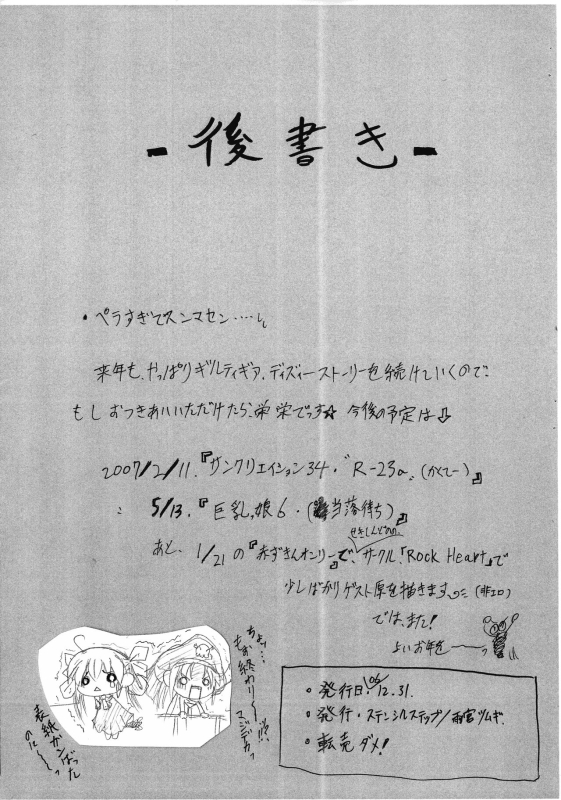 - 後書き -
・ペラすぎてスンマセン……
来年も、やっぱりギルティギア、ディズィーストーリーを続けていくので、
もしおつきあいいただけたら、栄栄でっす☆ 今後の予定は⇩
2007/2/11.『サンクリエイション34・"R-23a"(かくてー)』
〃 5/13.『巨乳っ娘6・(当落待ち)』
あと、1/21の『赤ずきんオンリー』で、サークル、「Rock Heart」で
少しばかりゲスト原を描きます (非エロ)
では、また!
よいお年を〜っ
ちょッ…
もお終わり〜!?!!
マジデカっ
表紙がんばった
のに〜っ
。発行日:'06 12.31.
。発行・ステンシルステップ/雨宮ツムギ
。転売ダメ!